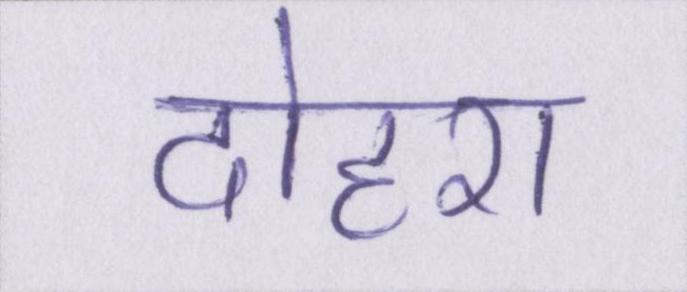 दोहरा